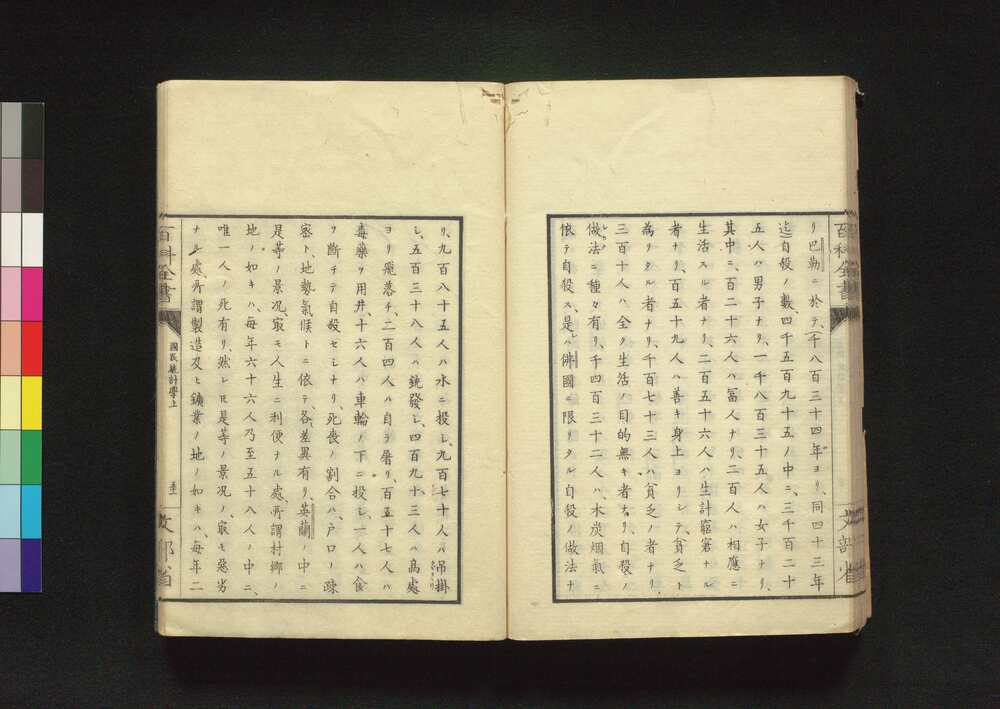 リ巴勒ニ於テ、千八百三十四年ヨリ、同四十三年
迄自殺ノ數、四千五百九十五ノ中ニ、三千百二十
五人ハ男子ナリ、一千八百三十五人ハ女子ナリ、
其中ニ、百二十六人ハ冨人ナリ、二百人ハ相應ニ
生活スル者ナリ、二百五十六人ハ生計窘窮ナル
者ナリ、百五十九人ハ善キ身上ヨリシテ、貧乏ト
為リタル者ナリ、千百七十三人ハ貧乏ノ者ナリ、
三百十人ハ全ク生活ノ目的無キ者ナリ、自殺ノ
做法ニ種々有リ、千四百三十二人ハ、木炭烟氣ニ
依テ自殺ス、是レハ佛國ニ限リタル自殺ノ做法ナ
百科全書
文部省
リ、九百八十五人ハ水ニ投シ、九百七十人ハ吊掛
シ、五百三十八人ハ銃發シ、四百九十三人ハ高處
ヨリ飛落チ、二百四人ハ自ラ屠リ、百五十七人ハ
毒藥ヲ用井、十六人ハ車輪ノ下ニ投シ、一人ハ食
ヲ斷チテ自殺セシナリ、死喪ノ割合ハ、戸口ノ疎
密ト、地勢氣候トニ依テ、各差異有リ、英蘭ノ中ニ
是等ノ景况、㝡モ人生ニ利便ナル處、所謂村鄕ノ
地ノ如キハ、每年六十六人乃至五十八人ノ中ニ、
唯一人ノ死有リ、然レ𪜈是等ノ景况ノ、㝡モ惡劣
ナル處、所謂製造及ヒ鑛業ノ地ノ如キハ、每年二
百科全書
國民統計學上
文部省